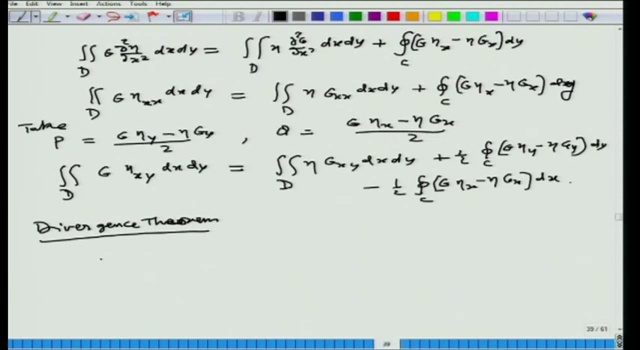 Edit View Insert Actions Tools Help
∬_D G ∂²η/∂x² dxdy = ∬_D η ∂²G/∂x² dxdy + ∮_C (G η_x − η G_x) dy
∬_D G η_xx dxdy = ∬_D η G_xx dxdy + ∮_C (G η_x − η G_x) dy
Take P = (G η_y − η G_y)/2 , Q = (G η_x − η G_x)/2
∬_D G η_xy dxdy = ∬_D η G_xy dxdy + ½ ∮_C (G η_y − η G_y) dy
− ½ ∮_C (G η_x − η G_x) dx.
Divergence Theorem
39